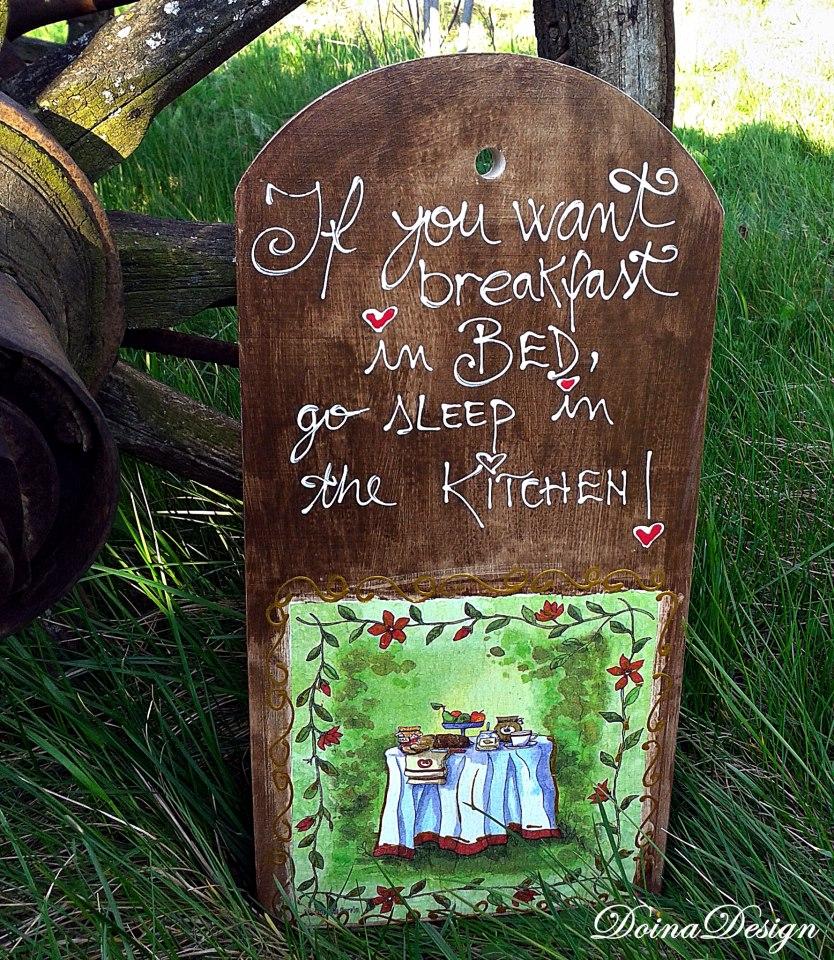 If you want
breakfast
in BED,
go sLEEP in
the KiTCHEN!
DoinaDesign